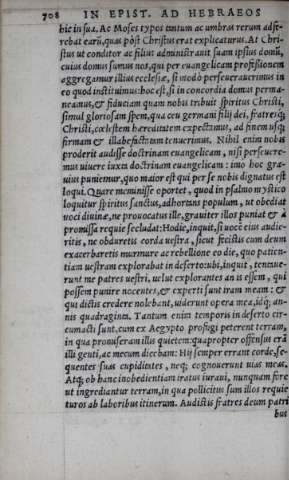 708 IN EPIST. AD HEBRAEOS
hic in sua. Ac Moses typos tantum ac umbras rerum adfe-
rebat earũ, quas post Christus erat explicaturus. At Chri-
stus ut conditor ac filius administrauit suam ipsius domũ,
cuius domus sumus nos, qui per euangelicam professionem
aggregamur illius ecclesiæ, si modò perseuerauerimus in
eo quod instituimus: hoc est, si in concordia domus perma-
neamus, & fiduciam quam nobis tribuit spiritus Christi,
simul gloriosam spem, qua ceu germani filij dei, fratresq́;
Christi, cœlestem hæreditatem expectamus, ad finem usq;
firmam & illabefactam tenuerimus. Nihil enim nobis
proderit audisse doctrinam euangelicam, nisi perseuere-
mus uiuere iuxta doctrinam euangelicam: imo hoc gra-
uius puniemur, quo maior est qui per se nobis dignatus est
loqui. Quare meminisse oportet, quod in psalmo mystico
loquitur spiritus sanctus, adhortans populum, ut obediat
uoci diuinæ, ne prouocatus ille, grauiter illos puniat & à
promissa requie secludat: Hodie, inquit, si uocẽ eius audie-
ritis, ne obduretis corda uestra, sicut fecistis cum deum
exacerbaretis murmure ac rebellione eo die, quo patien-
tiam uestram explorabat in deserto: ubi, inquit, tentaue-
runt me patres uestri, uelut explorantes an is essem, qui
possem punire nocentes, & experti sunt iram meam: &
qui dictis credere nolebant, uiderunt opera mea, idq; an-
nis quadraginta. Tantum enim temporis in deserto cir-
cumacti sunt, cum ex Aegypto profugi peterent terram,
in qua promiseram illis quietem: quapropter offensus erã
illi genti, ac mecum dicebam: Hi semper errant corde, se-
quentes suas cupiditates, neq; cognouerunt uias meas.
Atq; ob hanc inobedientiam iratus iuraui, nunquam fore
ut ingrediantur terram, in qua pollicitus sum illos requie
turos ab laboribus itinerum. Audistis fratres deum patri
bus